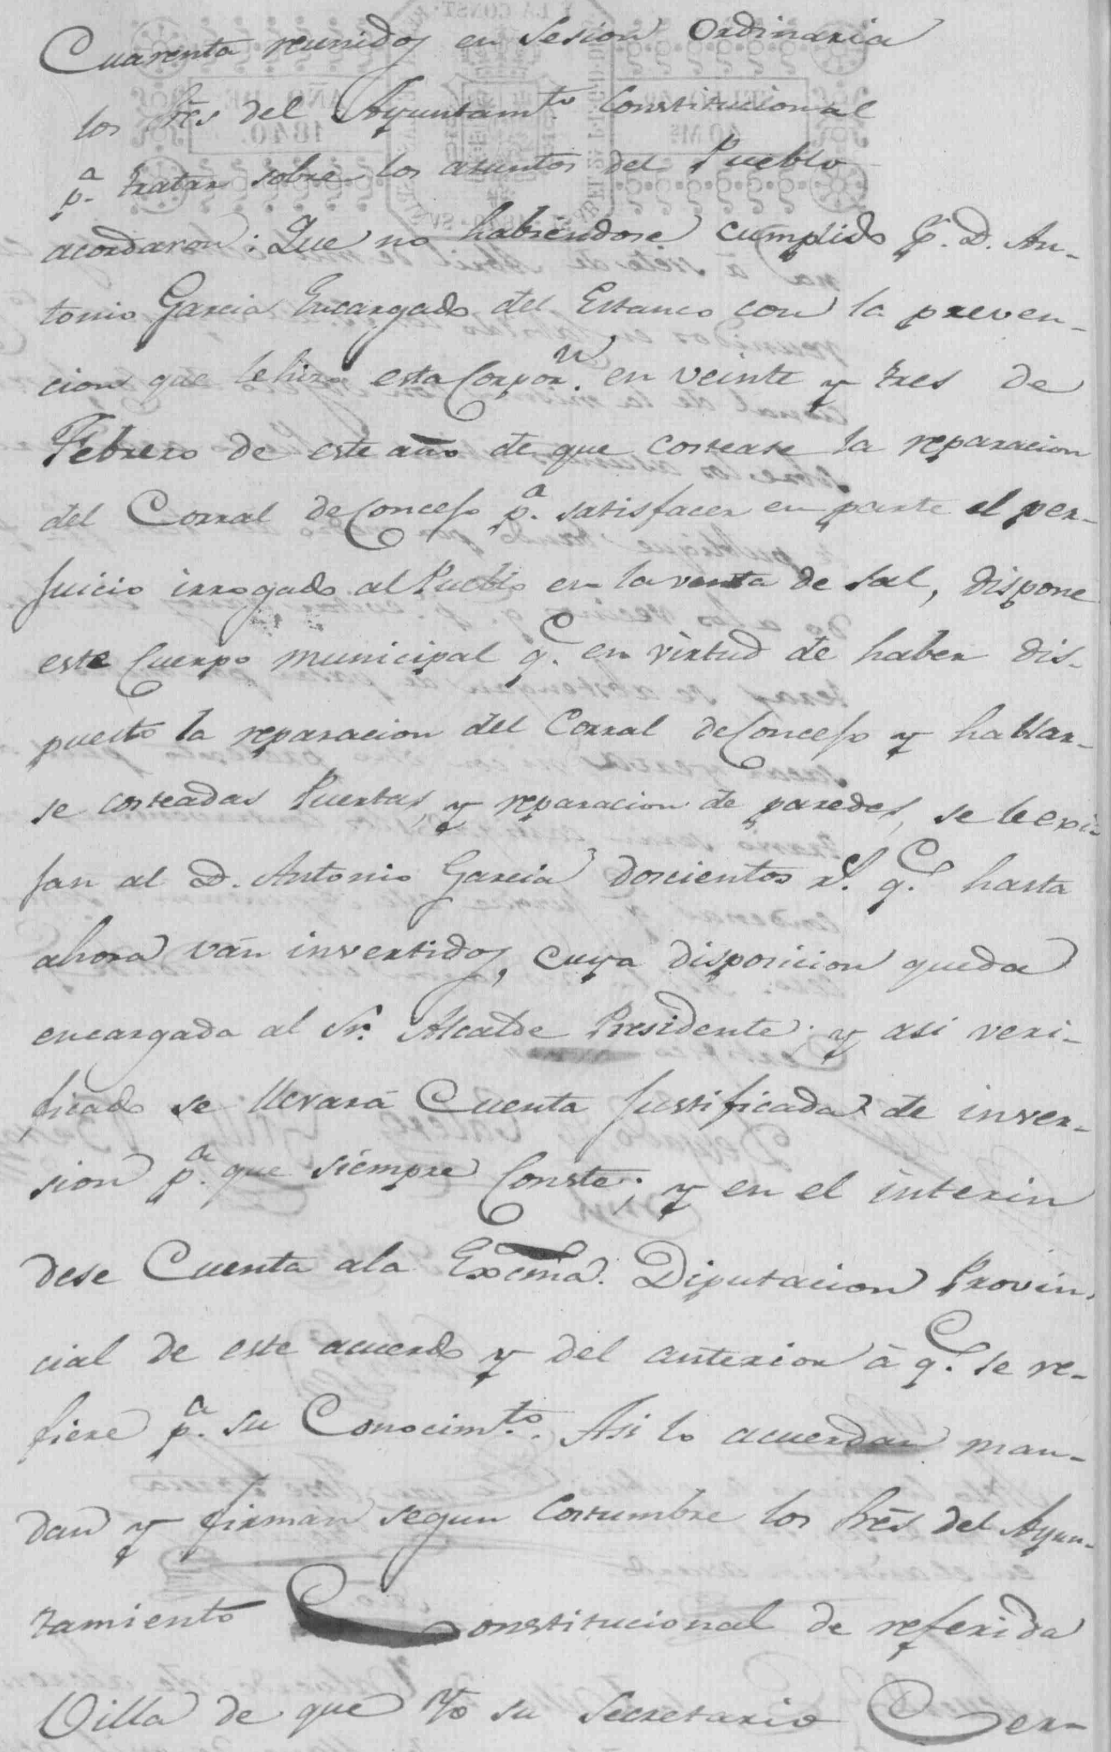 Cuarenta reunidos en Sesion Ordinaria
los Sres del Ayuntamto. Constitucional
pa. tratar sobre los asuntos del Pueblo
acordaron: Que no habiendose cumplido pr. D. An-
tonio Garcia Encargado del Estanco con la preven-
cion que le hizo esta Corporn. en veinte y tres de
Febrero de este año de que costease la reparacion
del Corral de Concejo pa. satisfacer en parte el per-
juicio irrogado al Pueblo en la venta de sal, dispone
este Cuerpo municipal qe. en virtud de haber dis-
puesto la reparacion del Corral de Concejo y hallar-
se costeadas Puertas, y reparacion de paredes, se le exi-
jan al D. Antonio Garcia doscientos rs. qe. hasta
ahora ván invertidos, cuya disposicion queda
encargada al Sr. Alcalde Presidente; y asi veri-
ficado se llevará Cuenta Justificada de inver-
sion pa. que siempre Conste; y en el interin
dese Cuenta a la Excma. Diputacion Provin-
cial de este acuerdo y del anterior á qe. se re-
fiere pa. su Conocimto. Asi lo acuerdan man-
dan y firman segun Costumbre los Sres del Ayun-
tamiento Constitucional de referida
Villa de que Yo su Secretario Cer-